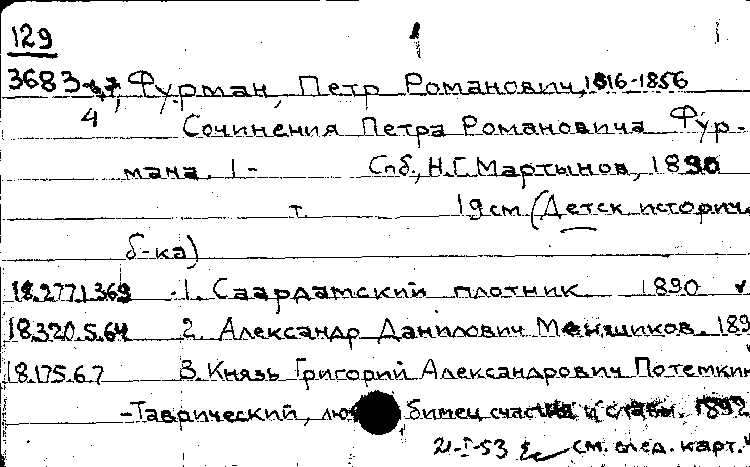 129
3683-47, Фурман, Петр Романович, 1816-1856
4
Сочинения Петра Романовича Фур-
мана. 1- Спб., Н.Г. Мартынов, 1890
т. 19 см (Детск. историч.
б-ка)
18.277.1.369 1. Саардамский плотник 1890
18.320.5.64 2. Александр Данилович Меншиков. 189
18.175.6.7 3. Князь Григорий Александрович Потемкин
-Таврический, любимец счастия и славы. 1892
21-I-53 см. след. карт.